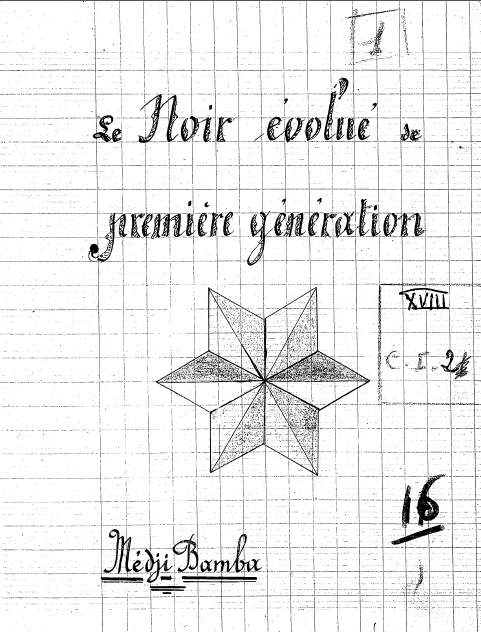 1
Le Noir évolué de
première génération
XVIII
C. I. 2
16
Médji Bamba